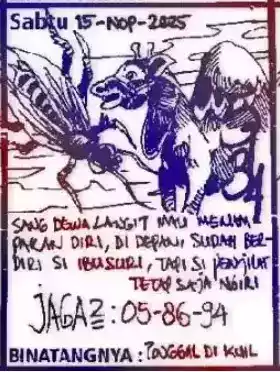 Sabtu 15-NOP-2025
SANG DEWA LANGIT MAU MENAM
PAKAN DIRI, DI DEPAN SUDAH BER-
DIRI SI IBUSURI, TAPI SI PENJILAT
TETAP SAJA NGIRI
JAGA2 : 05-86-94
BINATANGNYA : TONGGAL DI KUIL